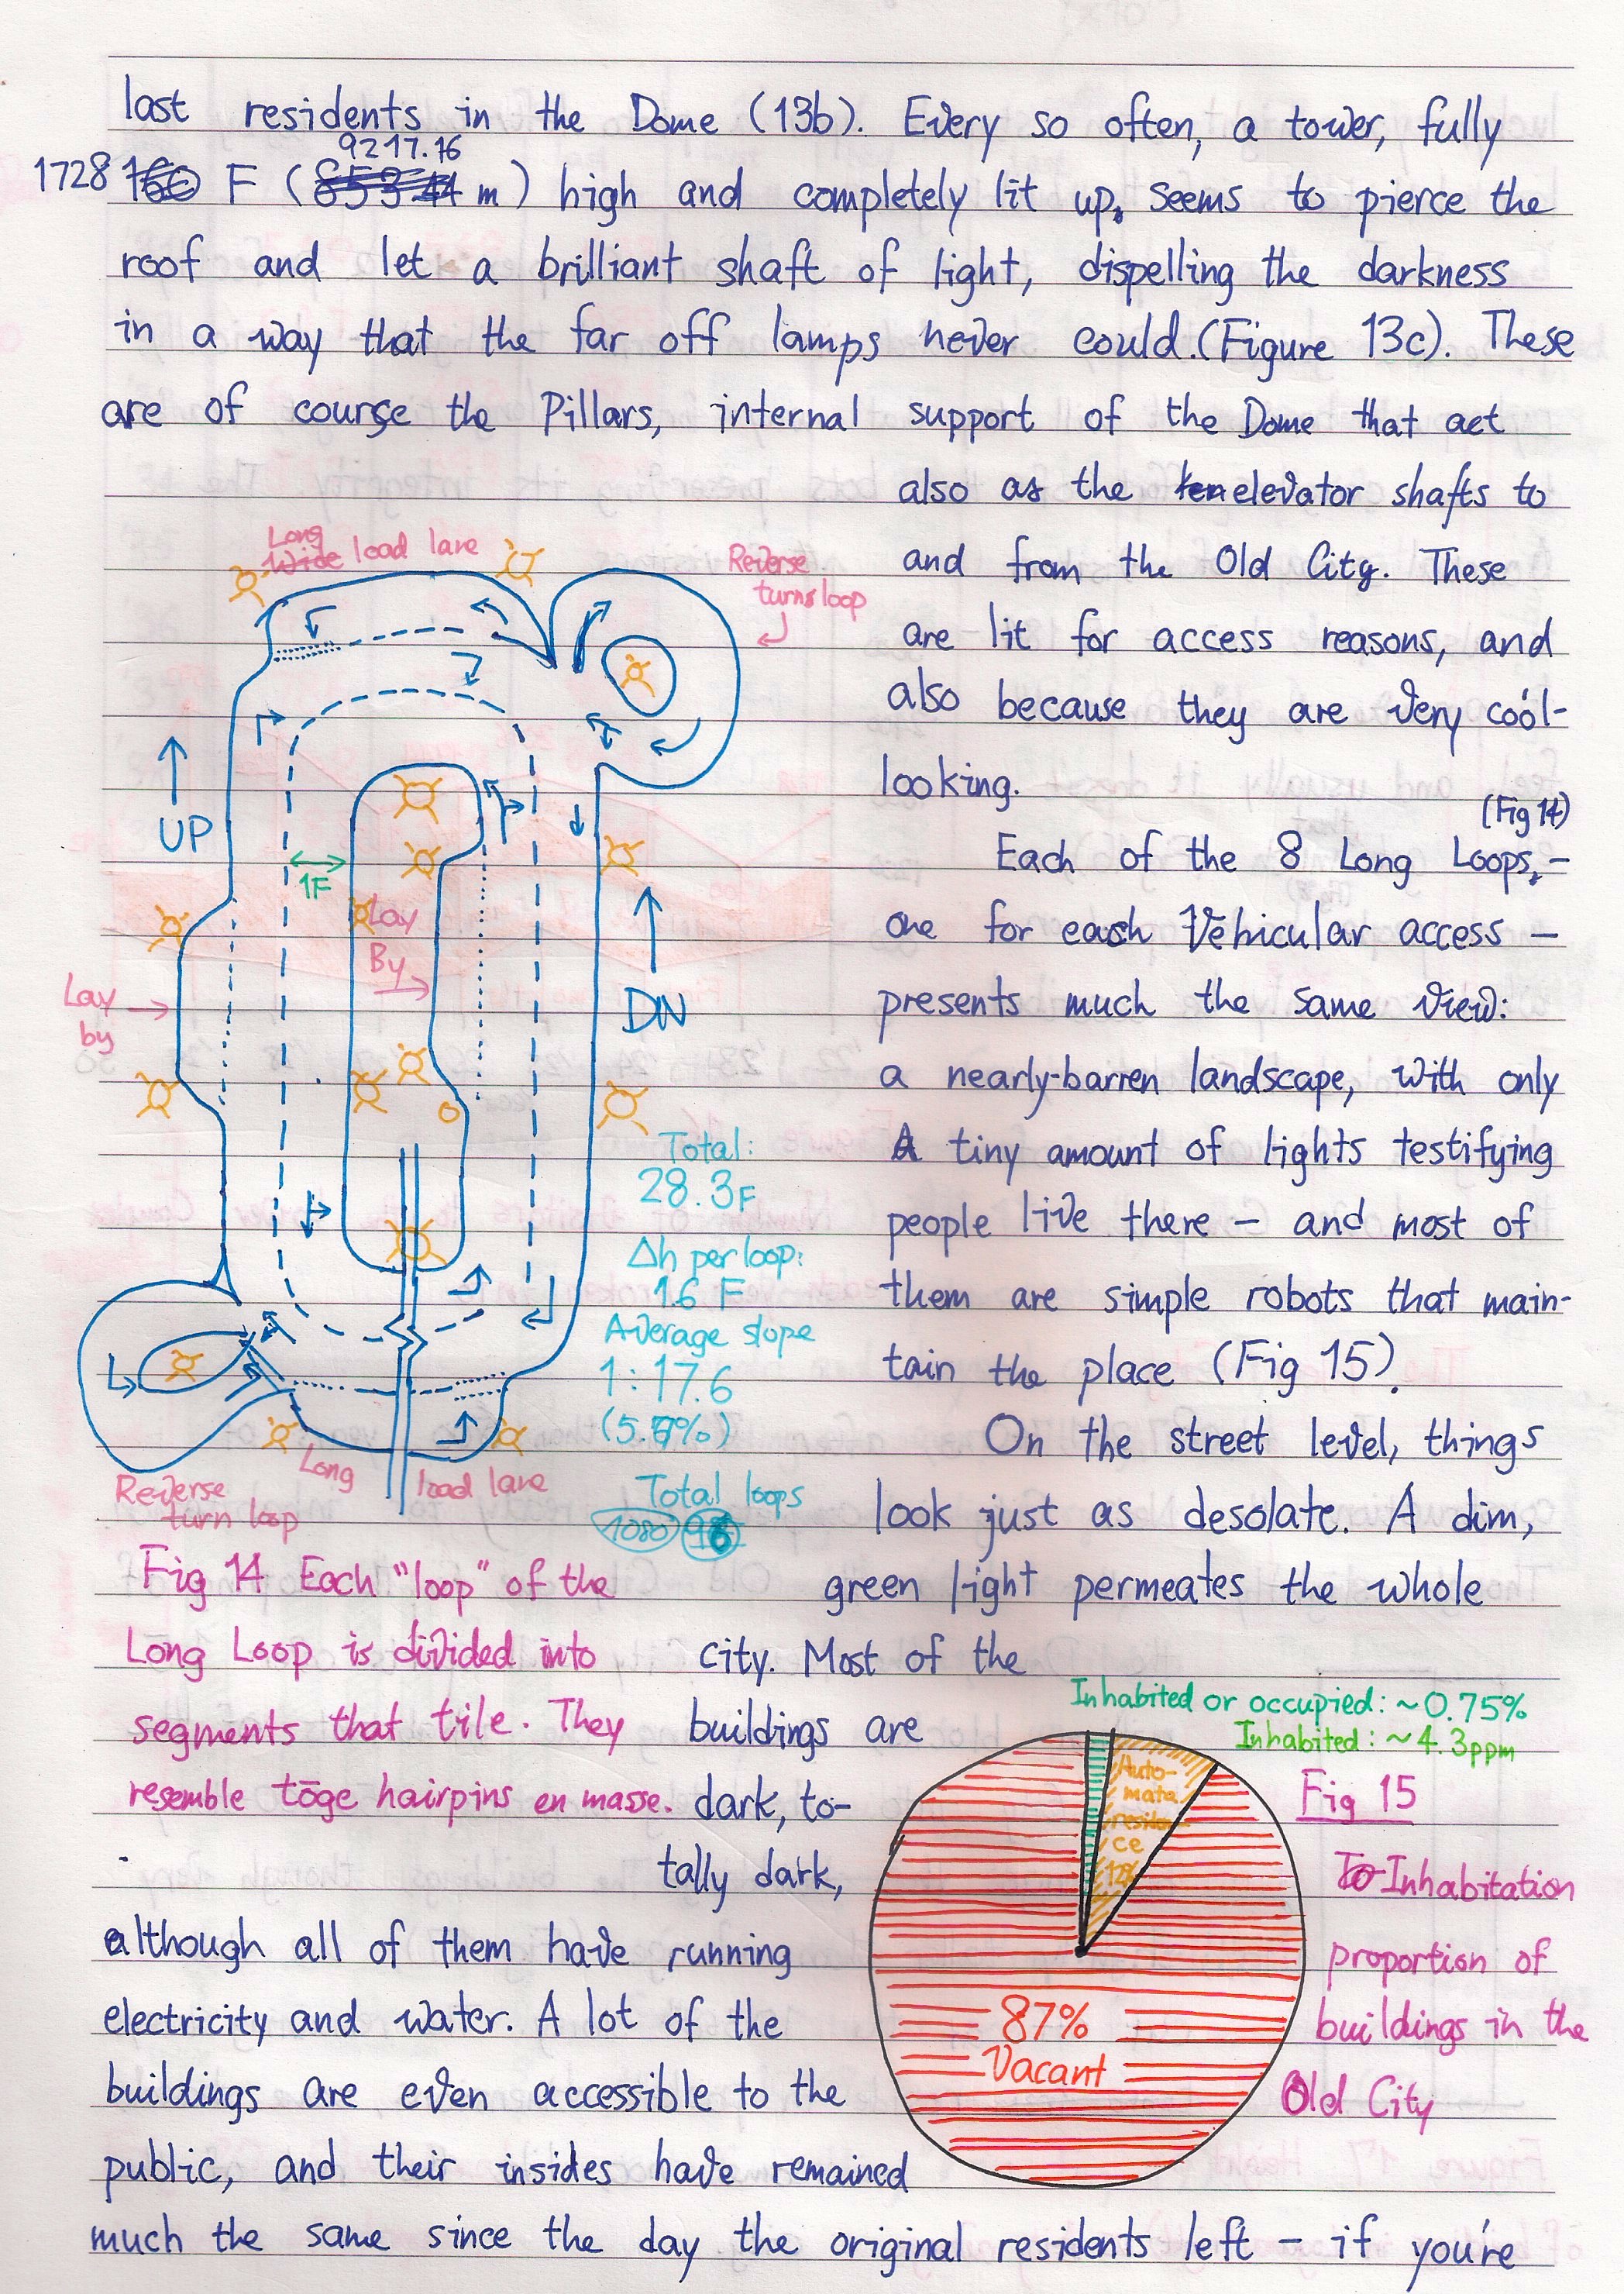 last residents in the Dome (13b). Every so often, a tower, fully
9217.16
1728 F ( m) high and completely lit up, seems to pierce the
roof and let a brilliant shaft of light, dispelling the darkness
in a way that the far off lamps never could.(Figure 13c). These
are of course the Pillars, internal support of the Dome that act
also as the elevator shafts to
and from the Old City. These
are lit for access reasons, and
also because they are very cool-
looking.
(Fig 14)
Each of the 8 Long Loops, –
one for each Vehicular access –
presents much the same view:
a nearly-barren landscape, with only
A tiny amount of lights testifying
people live there – and most of
them are simple robots that main-
tain the place (Fig 15).
On the street level, things
look just as desolate. A dim,
green light permeates the whole
city. Most of the
buildings are
dark, to-
tally dark,
although all of them have running
electricity and water. A lot of the
buildings are even accessible to the
public, and their insides have remained
much the same since the day the original residents left – if you're
Long
Wide load lane
Reverse
turns loop
UP
1F
Lay
By
Lay
by
DN
Total:
28.3F
Δh per loop:
1.6 F
Average slope
1:17.6
(5.7%)
Total loops
1080 96
Reverse
turn loop
Long load lane
Fig 14 Each "loop" of the
Long Loop is divided into
segments that tile. They
resemble tōge hairpins en masse.
Inhabited or occupied: ~0.75%
Inhabited: ~4.3ppm
Auto-
mata
residen
ce
12%
87%
Vacant
Fig 15
Inhabitation
proportion of
buildings in the
Old City